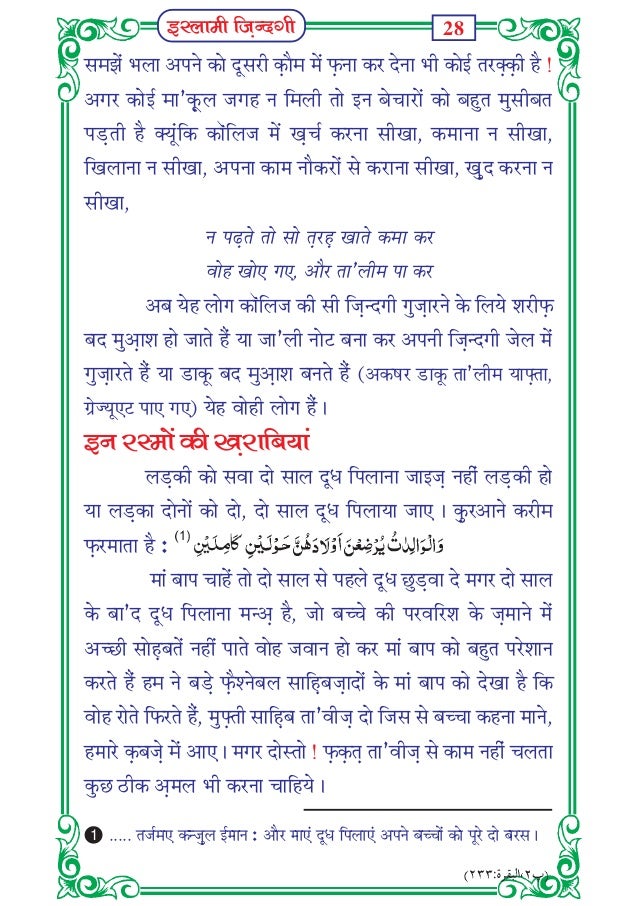 इस्लामी ज़िन्दगी
28
समझें भला अपने को दूसरी क़ौम में फ़ना कर देना भी कोई तरक़्क़ी है !
अगर कोई मा'कूल जगह न मिली तो इन बेचारों को बहुत मुसीबत
पड़ती है क्यूंकि कॉलिज में ख़र्च करना सीखा, कमाना न सीखा,
खिलाना न सीखा, अपना काम नौकरों से कराना सीखा, खुद करना न
सीखा,
न पढ़ते तो सो त़रह़ खाते कमा कर
वोह खोए गए, और ता'लीम पा कर
अब येह लोग कॉलिज की सी ज़िन्दगी गुज़ारने के लिये शरीफ़
बद मुआ़श हो जाते हैं या जा'ली नोट बना कर अपनी ज़िन्दगी जेल में
गुज़ारते हैं या डाकू बद मुआ़श बनते हैं (अकषर डाकू ता'लीम याफ़्ता,
ग्रेज्यूएट पाए गए) येह वोही लोग हैं।
इन रस्मों की ख़राबियां
लड़की को सवा दो साल दूध पिलाना जाइज़ नहीं लड़की हो
या लड़का दोनों को दो, दो साल दूध पिलाया जाए। कुरआने करीम
फ़रमाता है : (1) وَالْوَالِدٰتُ یُرْضِعْنَ اَوْلَادَهُنَّ حَوْلَیْنِ كَامِلَیْنِ
मां बाप चाहें तो दो साल से पहले दूध छुड़वा दे मगर दो साल
के बा'द दूध पिलाना मन्अ़ है, जो बच्चे की परवरिश के ज़माने में
अच्छी सोह़बतें नहीं पाते वोह जवान हो कर मां बाप को बहुत परेशान
करते हैं हम ने बड़े फ़ैश्नेबल साहिबज़ादों के मां बाप को देखा है कि
वोह रोते फिरते हैं, मुफ़्ती साहिब ता'वीज़ दो जिस से बच्चा कहना माने,
हमारे क़बज़े में आए। मगर दोस्तो ! फ़क़त़ ता'वीज़ से काम नहीं चलता
कुछ ठीक अ़मल भी करना चाहिये।
1 ..... तर्जमए कन्ज़ुल ईमान : और माएं दूध पिलाएं अपने बच्चों को पूरे दो बरस।
(پ٢،البقرة:٢٣٣)